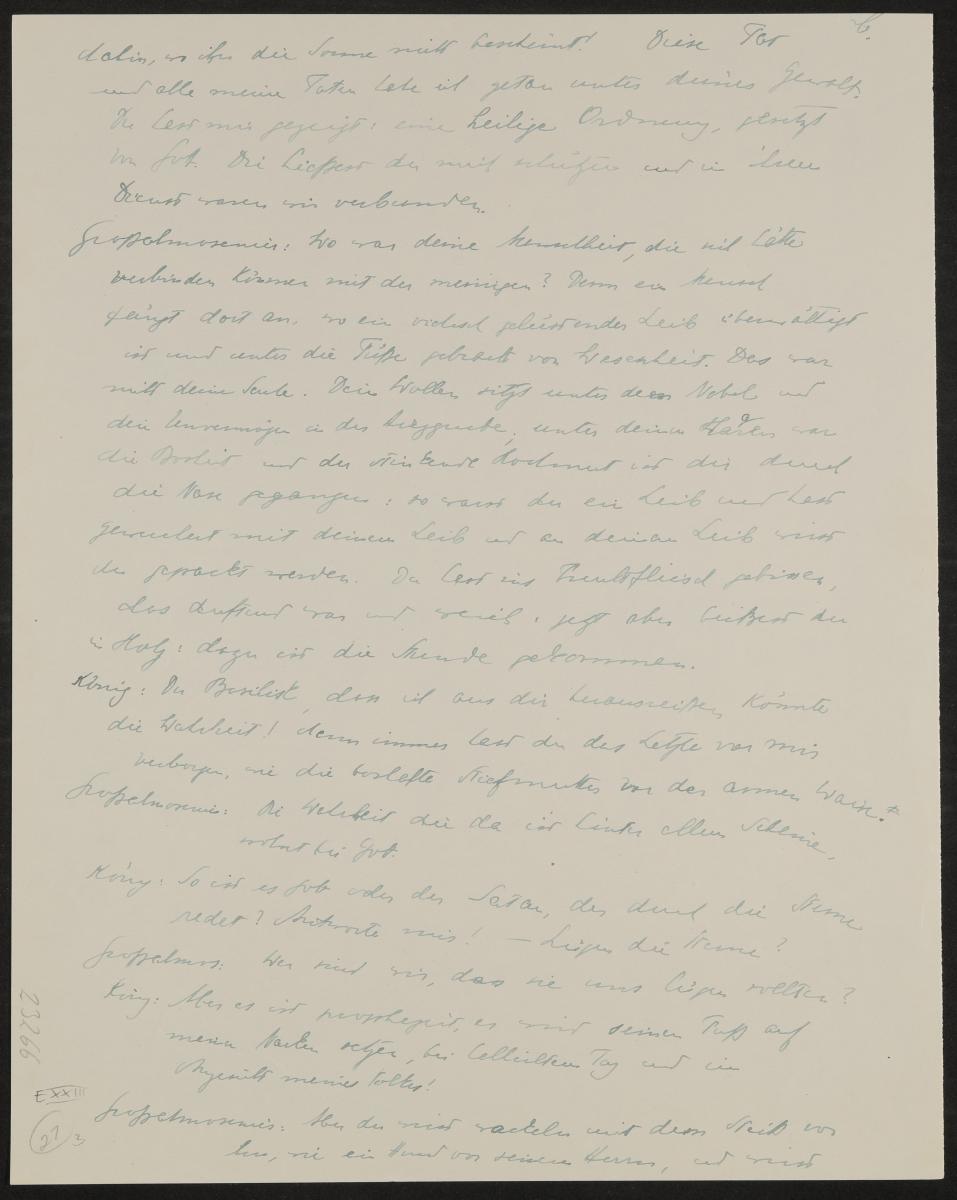 6.
dahin, wo ihn die Sonne nicht bescheint! Diese Tat
und alle meine Taten habe ich getan unter deiner Gewalt.
Du hast mir gezeigt: eine heilige Ordnung, gesetzt
von Gott. Die hießest du mich schützen und in ihrem
Dienst waren wir verbunden.
Großalmosenier: Wo war deine Menschheit, die sich hätte
verbinden können mit der meinigen? Denn ein Mensch
fängt dort an, wo ein viehisch gelüstender Leib überwältigt
ist und unter die Füße gebracht von Wesenheit. Das war
nicht deine Sache. Dein Wollen sitzt unter dem Nabel und
dein Unvermögen in der Herzgrube, unter deinen Haaren war
die Bosheit und der stinkende Hochmut ist dir durch
die Nase gegangen: so warst du ein Leib und hast
gewuchert mit deinem Leib und an deinem Leib wirst
du gepackt werden. Du hast ins Fleisch gebissen,
das duftend war und weich: jetzt aber beißest du
in Holz: dazu ist die Stunde gekommen.
König: Du Basilisk, dass ich aus dir herausreißen könnte
die Wahrheit! denn immer hast du das Letzte vor mir
verborgen, wie die boshafte Stiefmutter vor der armen Waise.
Großalmosenier: Die Wahrheit die da ist hinter allem Scheine,
wohnt bei Gott.
König: So ist es Gott oder der Satan, der durch die Sterne
redet? Antworte mir! – Lügen die Sterne?
Großalmos: Wer sind wir, dass sie uns lügen sollten?
König: Aber es ist prophezeit, er wird seinen Fuß auf
meinen Nacken setzen, bei hellichtem Tag und im
Angesicht meines Volkes!
Großalmosenier: Aber du wirst wackeln mit dem Steiß vor
ihm, wie ein Hund vor seinem Herrn, und wirst
23266
E XXIII
27
3